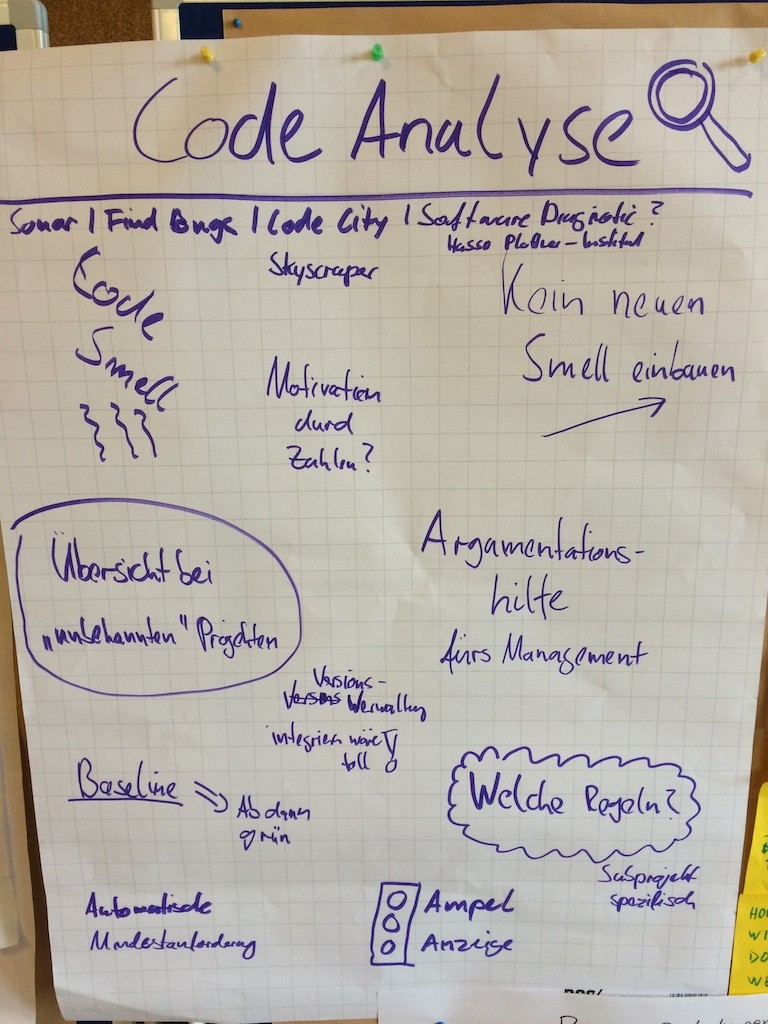 Code Analyse
Sonar | Find Bugs | Code City | Software Diagnostic?
Hasso Plattner-Institut
Skyscraper
Code
Smell
Kein neuen
Smell einbauen
Motivation
durch
Zahlen?
Übersicht bei
„unbekannten" Projekten
Argumentations-
hilfe
fürs Management
Versions-
Verwaltung
integrieren wäre
toll!
Baseline
Ab dann
grün
Welche Regeln?
Subprojekt
spezifisch
Automatische
Mindestanforderung
Ampel
Anzeige